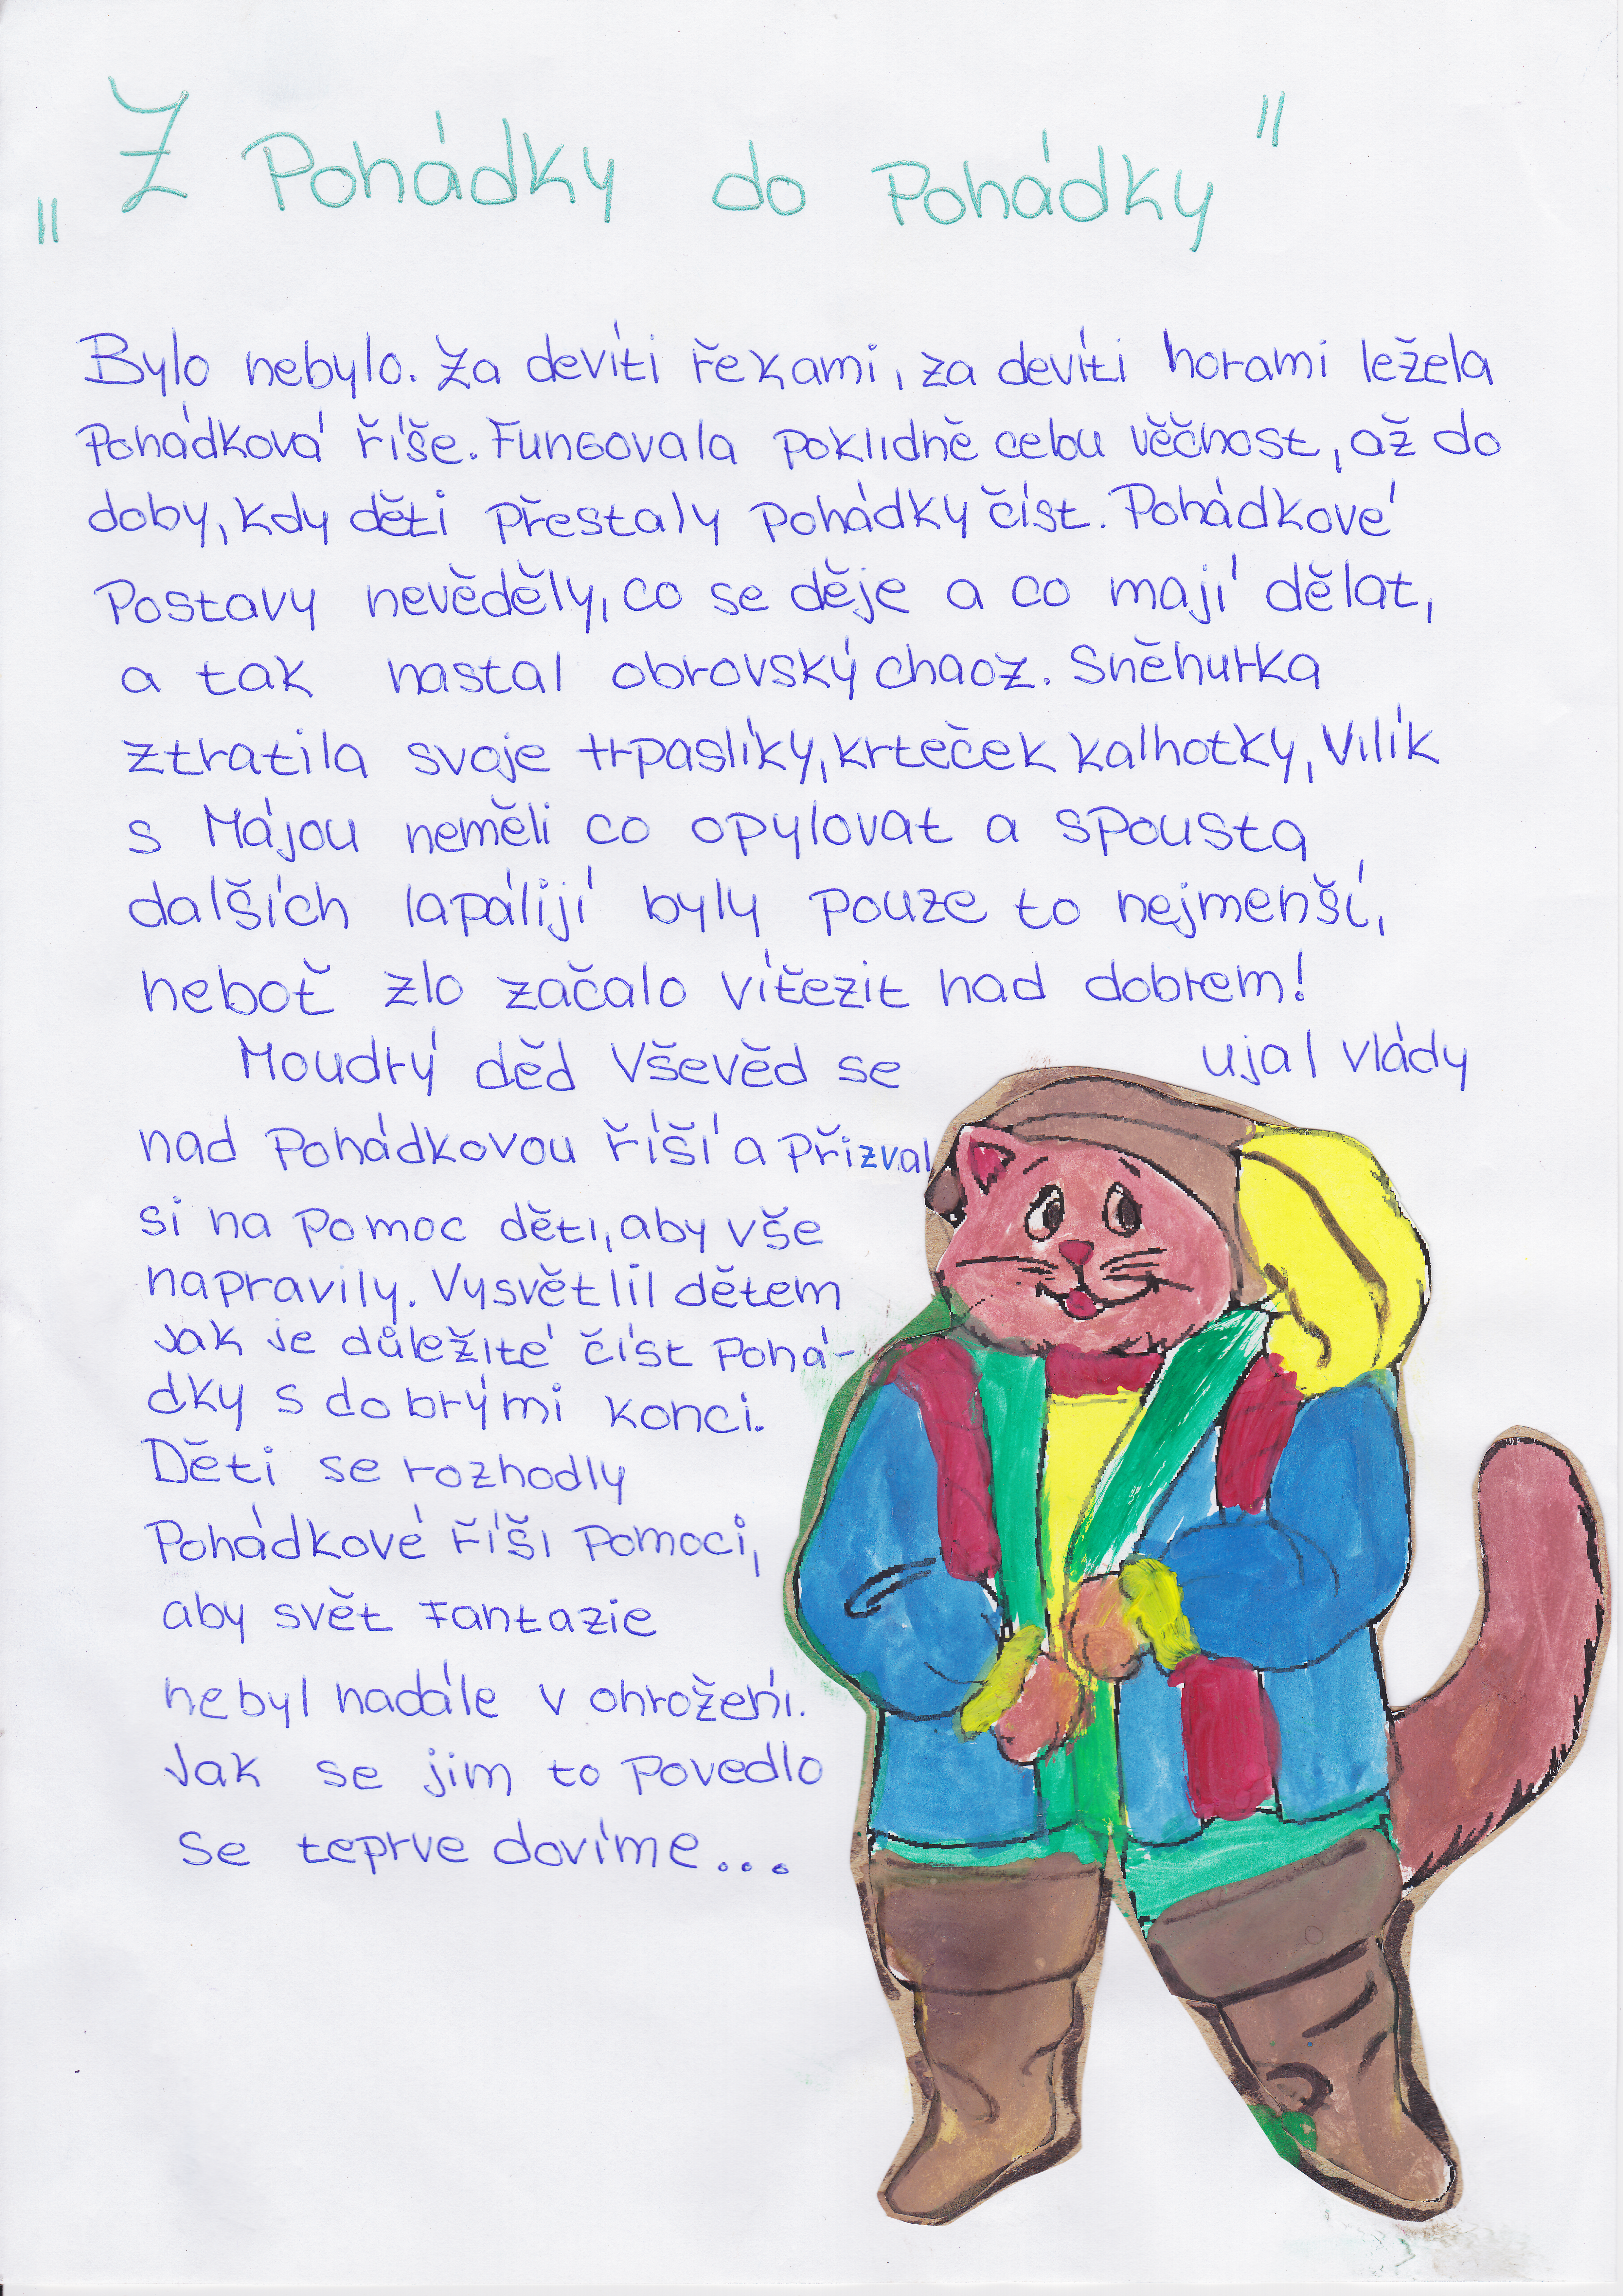 „Z Pohádky do Pohádky"
Bylo nebylo. Za devíti řekami, za devíti horami ležela
Pohádková říše. Fungovala poklidně celou věčnost, až do
doby, kdy děti přestaly pohádky číst. Pohádkové
Postavy nevěděly, co se děje a co mají dělat,
a tak nastal obrovský chaoz. Sněhurka
ztratila svoje trpaslíky, krteček kalhotky, Vilík
s Májou neměli co opylovat a spousta
dalších lapálijí byly pouze to nejmenší,
neboť zlo začalo vítězit nad dobrem!
Moudrý děd Vševěd se ujal vlády
nad Pohádkovou říší a přizval
si na pomoc děti, aby vše
napravily. Vysvětlil dětem
Jak je důležité číst Pohá-
dky s dobrými konci.
Děti se rozhodly
Pohádkové říši pomoci,
aby svět Fantazie
nebyl nadále v ohrožení.
Jak se jim to povedlo
se teprve dovíme...